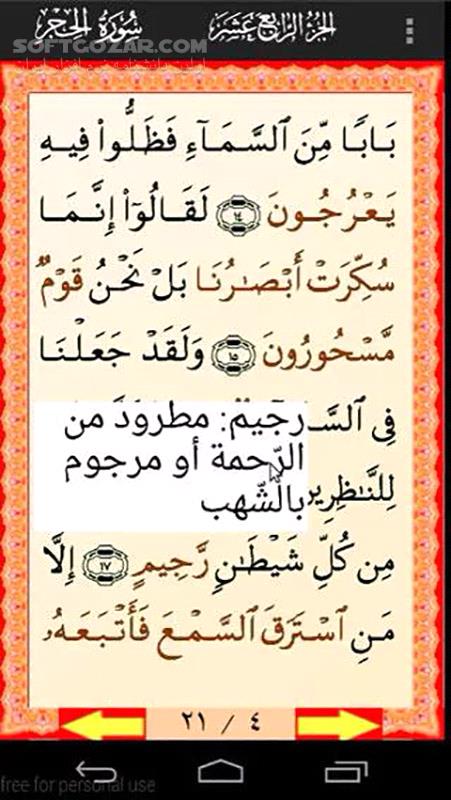 الجزء الرابع عشر
سورة الحجر
SOFTGOZAR.COM
بَابًا مِّنَ ٱلسَّمَآءِ فَظَلُّوا۟ فِيهِ
يَعْرُجُونَ ١٤ لَقَالُوٓا۟ إِنَّمَا
سُكِّرَتْ أَبْصَٰرُنَا بَلْ نَحْنُ قَوْمٌ
مَّسْحُورُونَ ١٥ وَلَقَدْ جَعَلْنَا
فِى
رجيم: مطرودَ من
الرّحمة أو مرجوم
بالشّهب
مِن كُلِّ شَيْطَٰنٍ رَّجِيمٍ ١٧ إِلَّا
مَنِ ٱسْتَرَقَ ٱلسَّمْعَ فَأَتْبَعَهُۥ
٢١ / ٤
free for personal use